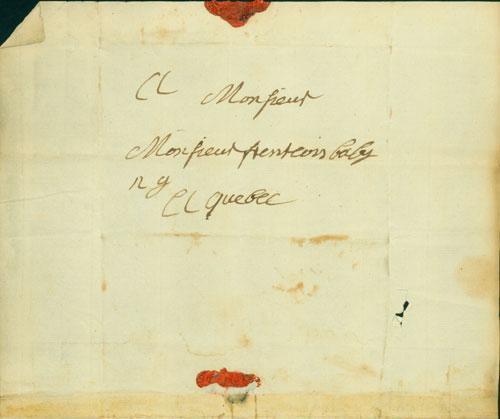 A Monsieur
Monsieur frentcois baby
n g
A quebec